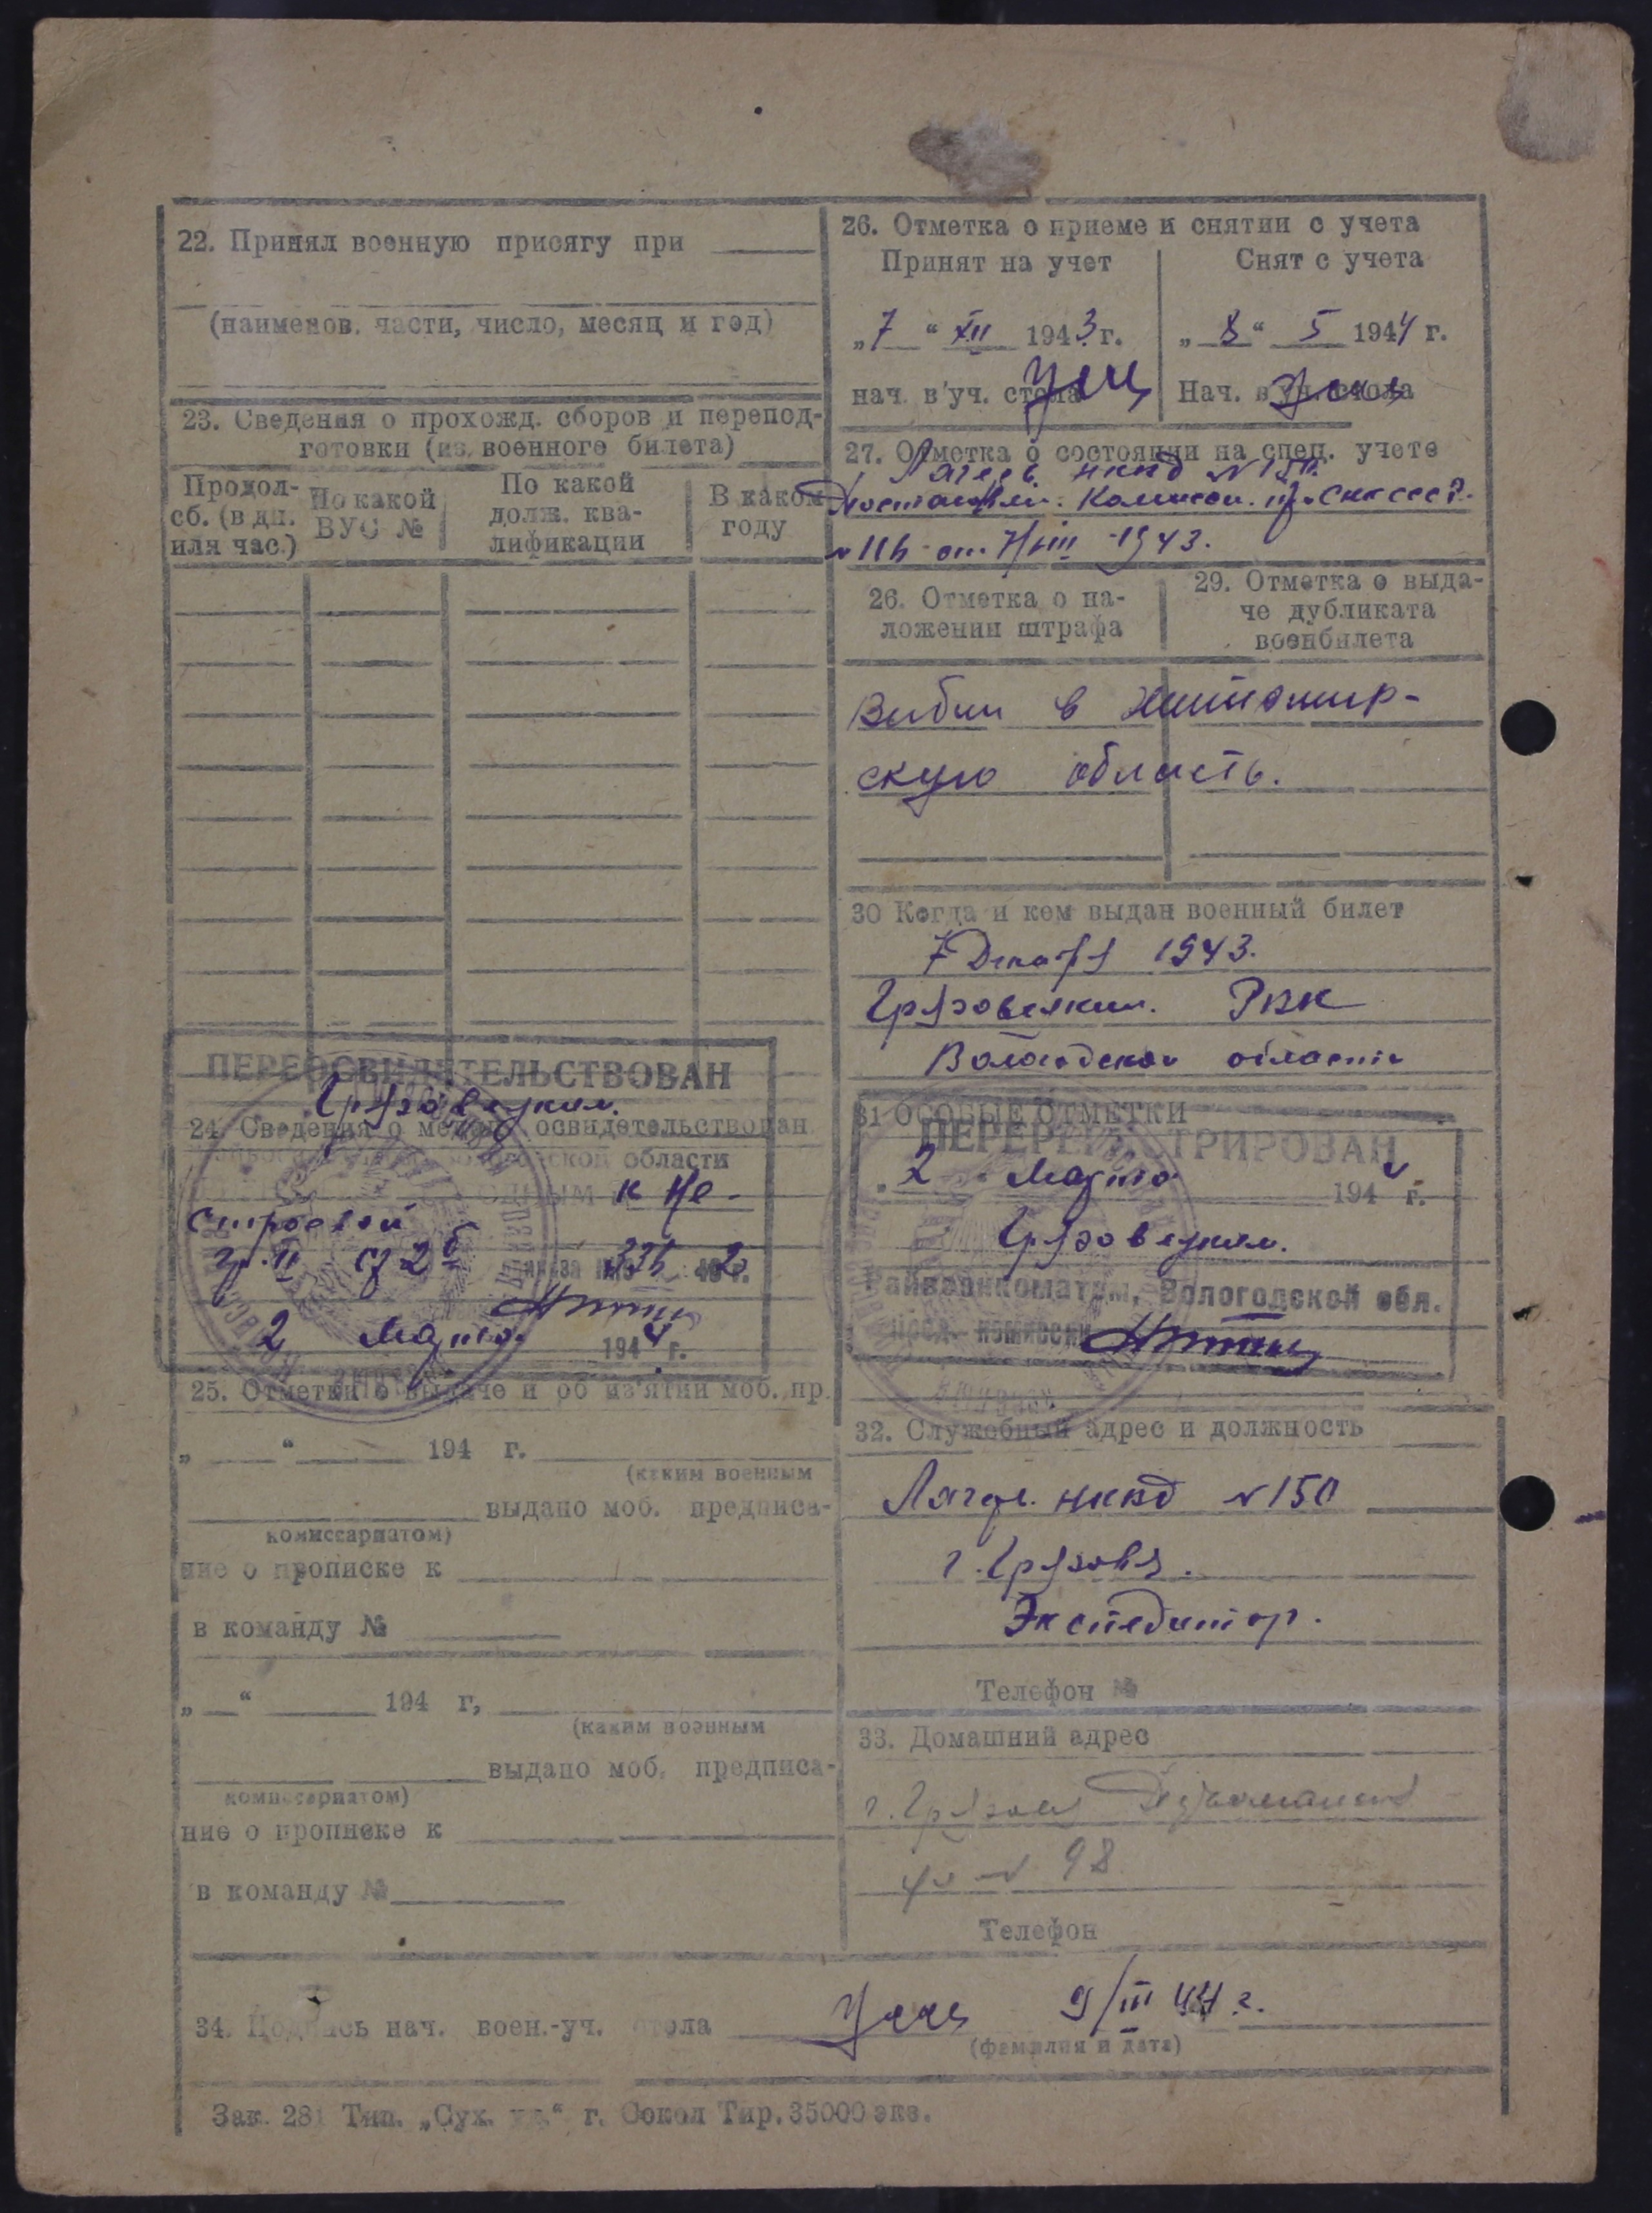 22. Принял военную присягу при
(наименов. части, число, месяц и год)
23. Сведения о прохожд. сборов и перепод-
готовки (из военного билета)
Продол-
сб. (в дн.
или час.)
По какой
ВУС №
По какой
долж. ква-
лификации
В каком
году
ПЕРЕОСВИДЕТЕЛЬСТВОВАН
Грязовецким.
24. Сведения о медиц. освидетельствован
области
к не-
строевой
гр. II ст 2б
336 42 г.
2 Марта 1944 г.
25. Отметки о выдаче и об из'ятии моб. пр.
„ “ 194 г.
(каким военным
выдано моб. предписа-
комиссариатом)
ние о прописке к
в команду №
„ “ 194 г,
(каким военным
выдано моб. предписа-
комиссариатом)
ние о прописке к
в команду №
26. Отметка о приеме и снятии с учета
Принят на учет
„7 “ XII 1943 г.
нач. в'уч. стола
Снят с учета
„ 8 “ 5 1944 г.
Нач. в'уч. стола
27. Отметка о состоянии на спец. учете
Лагерь НКВД №150.
Постановлен. Комисси. при СНК СССР.
№ 116 от 7/VIII-1943.
26. Отметка о на-
ложении штрафа
29. Отметка о выда-
че дубликата
военбилета
Вибыл в Житомир-
скую область.
30 Когда и кем выдан военный билет
7 Декабря 1943.
Грязовецким. РВК
Вологодской области
31 ОСОБЫЕ ОТМЕТКИ
ПЕРЕРЕГИСТРИРОВАН
„ 2 “ Марта 1944 г.
Грязовецким.
Райвоенкоматом, Вологодской обл.
Пред. комиссии
32. Служебный адрес и должность
Лагерь НКВД №150
г. Грязовец.
Экспедитор.
Телефон №
33. Домашний адрес
г. Грязовец
№ 98
Телефон
34. Подпись нач. воен.-уч. стола 9/III 44 г.
(фамилия и дата)
Зак. 281 Тип. „Сух. “ г. Сокол Тир. 35000 экз.